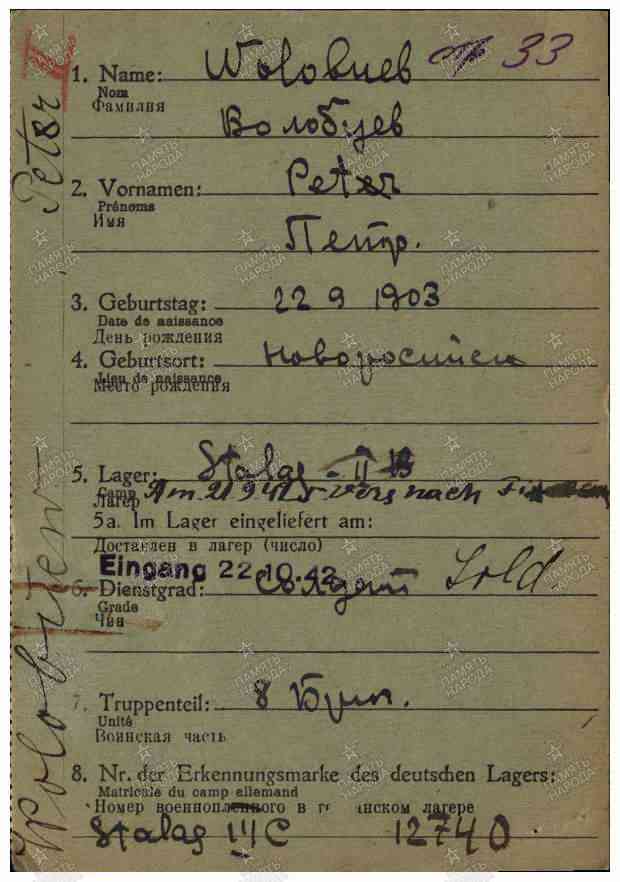 1. Name: Wolobuev № 33
Nom
Фамилия
Волобуев
2. Vornamen: Peter
Prénoms
Имя
Петр.
3. Geburtstag: 22 9 1903
Date de naissance
День рождения
4. Geburtsort: Новороссийск
Lieu de naissance
Место рождения
5. Lager: Stalag - II B
Camp Am 21 9 42 vers nach
Лагер
5a. Im Lager eingeliefert am:
Доставлен в лагер (число)
Eingang 22.10.42
6. Dienstgrad: Солдат Sold.
Grade
Чин
7. Truppenteil: 8
Unité
Воинская часть
8. Nr. der Erkennungsmarke des deutschen Lagers:
Matricule du camp allemand
Номер военнопленного в германском лагере
Stalag III C 12740
Peter
ПАМЯТЬ НАРОДА